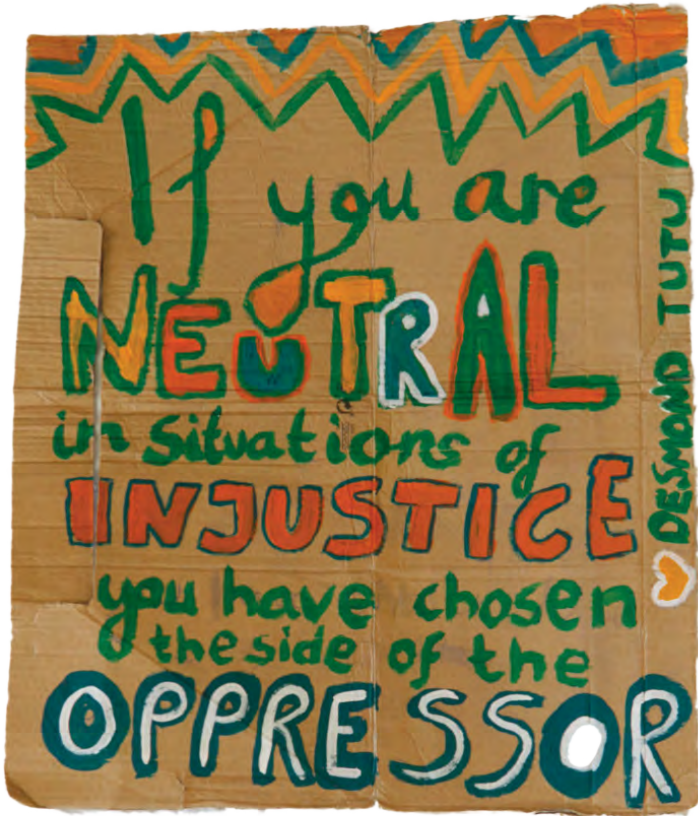 If you are
NEUTRAL
in situations of
INJUSTICE
you have chosen
the side of the
OPPRESSOR
DESMOND TUTU